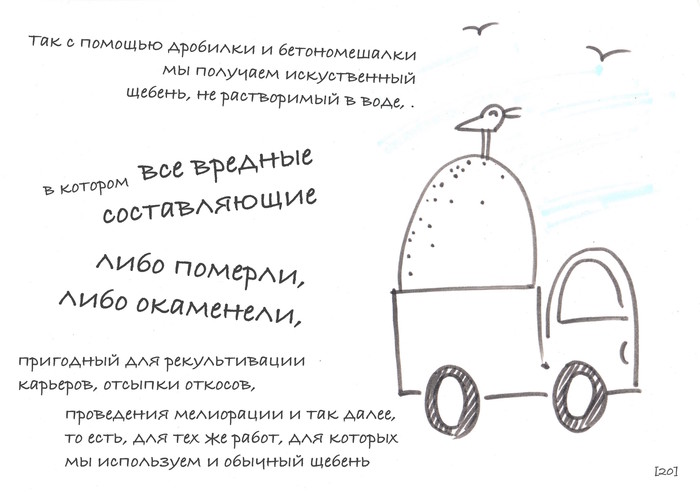 Так с помощью дробилки и бетономешалки
мы получаем искуственный
щебень, не растворимый в воде, .
в котором все вредные
составляющие
либо померли,
либо окаменели,
пригодный для рекультивации
карьеров, отсыпки откосов,
проведения мелиорации и так далее,
то есть, для тех же работ, для которых
мы используем и обычный щебень
[20]